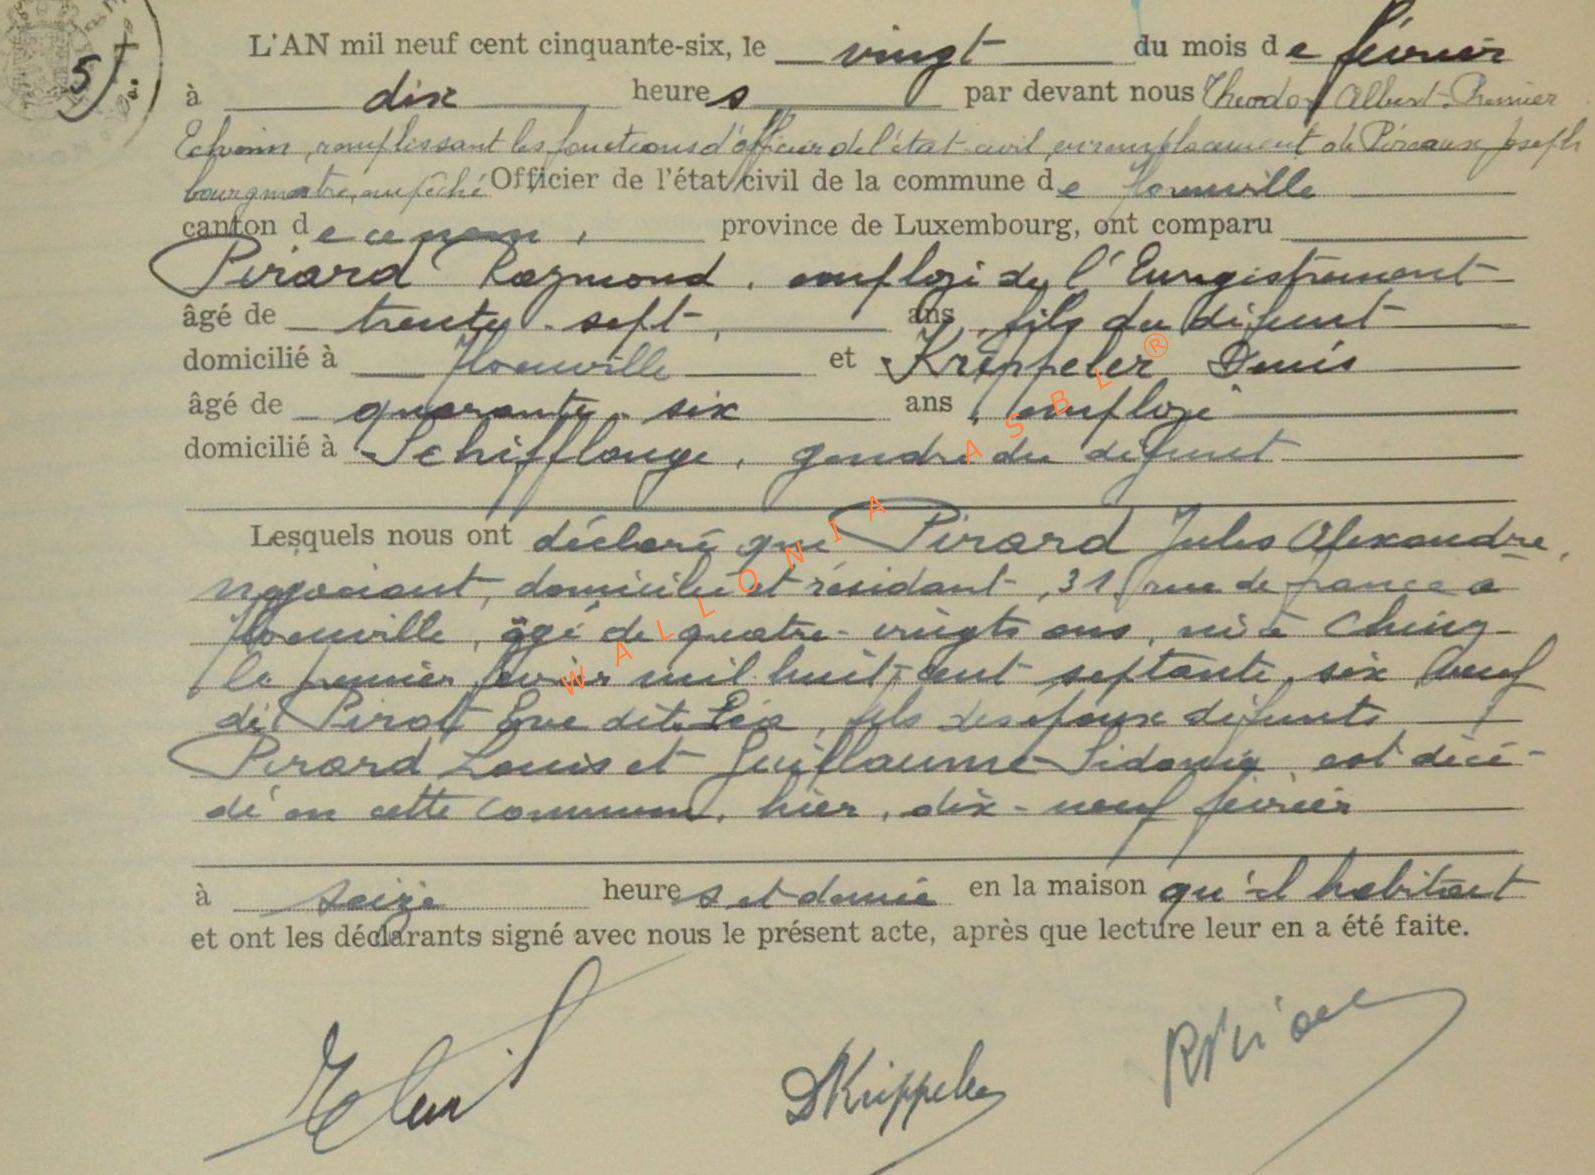 5
L'AN mil neuf cent cinquante-six, le vingt du mois de février
à dix heures par devant nous Theodor Albert. Premier
Echevin, remplissant les fonctions d'officier de l'état-civil, en remplacement de Pireaux Joseph
bourgmestre, empêché Officier de l'état civil de la commune de Florenville
canton de ce nom, province de Luxembourg, ont comparu
Pirard Raymond, employé de l'Enregistrement
âgé de trente-sept, ans, fils du défunt
domicilié à Florenville et Krippeler Denis
âgé de quarante-six ans, employé
domicilié à Schifflange, gendre du défunt
Lesquels nous ont déclaré que Pirard Jules Alexandre,
négociant, domicilié et résidant, 31, rue de france à
Florenville, âgé de quatre-vingts ans, né à Chiny
le premier février mil huit cent septante-six veuf
de Pirot Eve dite Léa, fils des époux défunts
Pirard Louis et Guillaume Sidonie est décé-
dé en cette commune, hier, dix-neuf février
à seize heures et demie en la maison qu'il habitait
et ont les déclarants signé avec nous le présent acte, après que lecture leur en a été faite.
DKrippeler
RPirard
WALLONIA ASBL ®